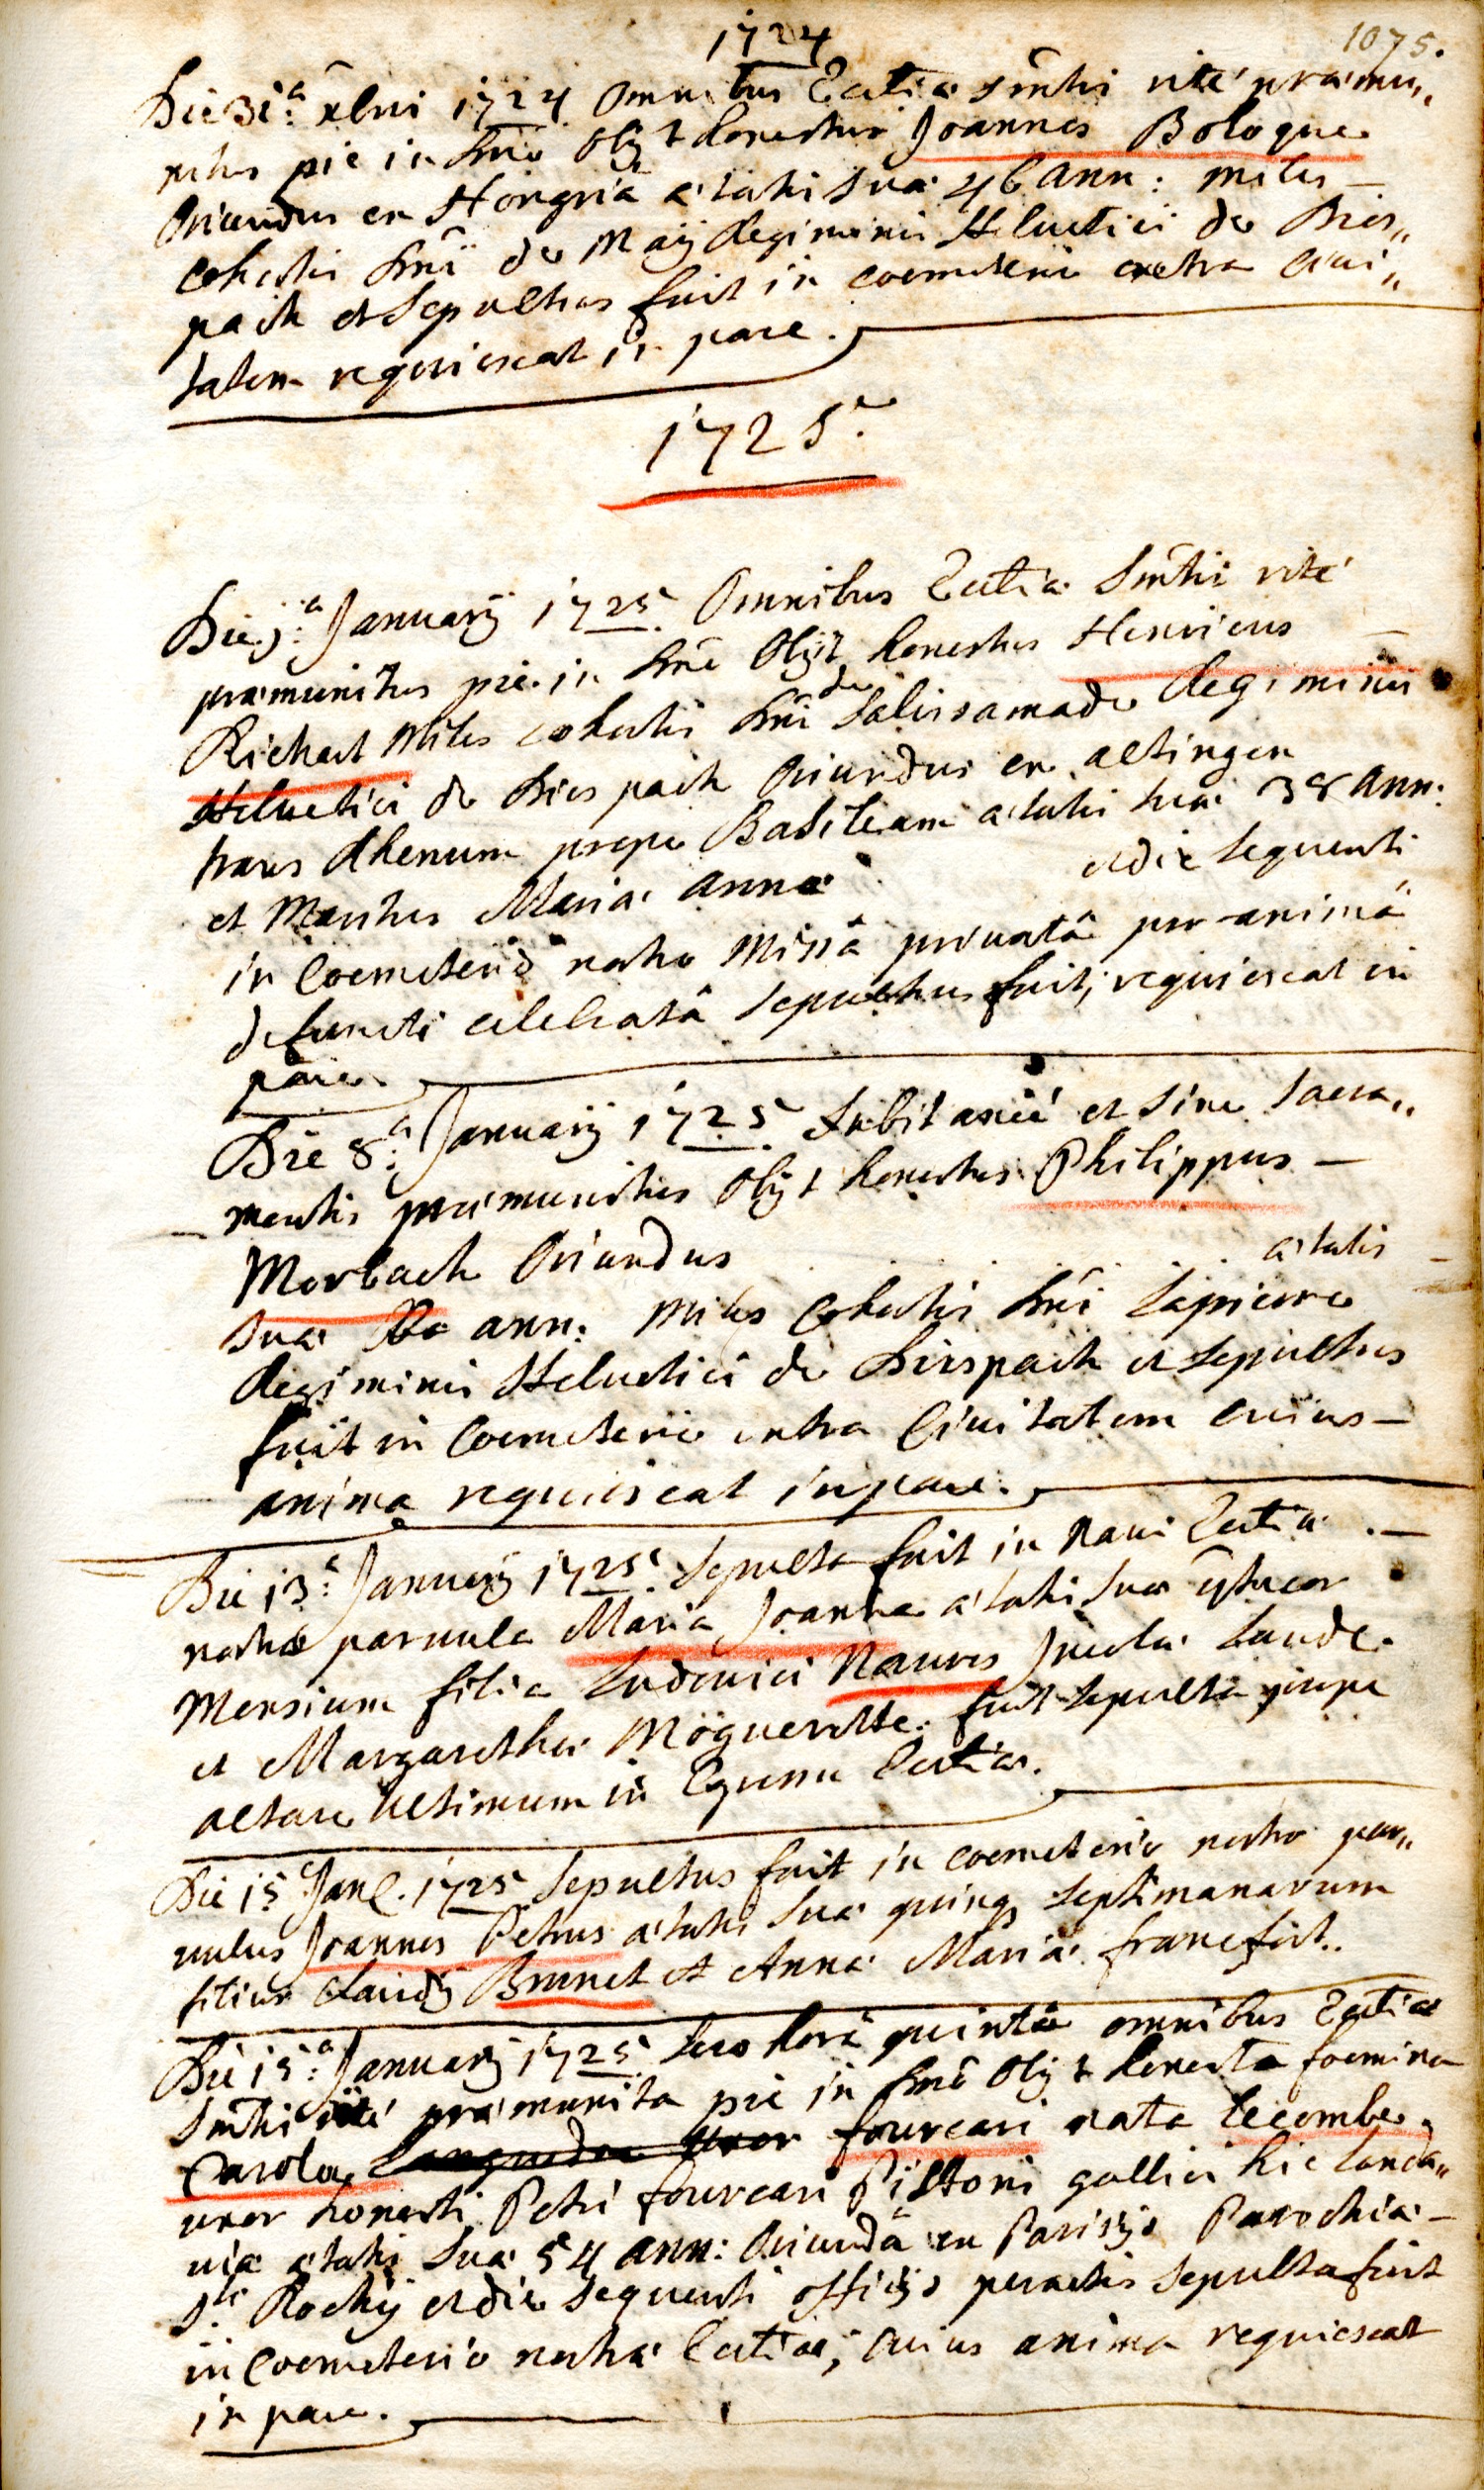 1724
1075.
Die 31.a Xbris 1724 Omnibus Ecctiæ Smtis rité præmu„
nitus pie in Dno obijt honestus Joannes Bologue
Oriundus ex Hongria ætatis suæ 46 ann: miles —
Cohortis Dni de Maÿ Regiminis Helvetici de Dies„
pach et sepultus fuit in coemeterio extra Civi„
tatem requiescat in pace.
1725.
Die j.a Januarÿ 1725 Omnibus Ecctiæ Smtis rité
præmunitus pie in Dno obijt honestus Henricus —
Richart Miles cohortis Dni de Salissamade Regiminis
Helvetici de Diespach Oriundus ex altingen
trans Rhenum prope Basileam ætatis suæ 38 ann:
et Maritus Mariæ Annæ et die sequenti
in Coemeterio nostro Missâ privatâ pro animâ
defuncti celebratâ sepultus fuit, requiescat in
pace.
Die 8.a Januarÿ 1725 Subitaneé et sine Sacra„
mentis præmunitus obijt honestus Philippus —
Morbach Oriundus ætatis —
suæ ann: Miles Cohortis Dni Lapierre
Regiminis Helvetici de Diespach et sepultus
fuit in Coemeterio extra Civitatem cuius —
anima requiescat in pace.
Die 13.a Januarÿ 1725 Sepulta fuit in Navi Ecctiæ. —
nostræ parvula Maria Joanna ætatis suæ
Mensium filia Ludovici Nauvos Incolæ Landc.
et Margarethæ Mögverette. fuit sepulta prope
altare ultimum in Ecctiæ.
Die 15 Jan. 1725 Sepultus fuit in coemeterio nostro par„
vulus Joannes Petrus ætatis suæ quinq septimanarum
filius Claudÿ Brunet et Annæ Mariæ francfort..
Die 15.a Januarÿ 1725 sero horâ quintâ omnibus Ecctiæ
Smtis rité præmunita pie in Dno obijt honesta foemina
Carola fourcari nata Lecombe
uxor honesti Petri fourcari Pistoris gallici hic Landa„
viæ ætatis suæ 54 ann: Oriunda ex Parisijs Parochiæ —
S.ti Rochij et die sequenti officijs peractis sepulta fuit
in Coemeterio nostræ Ecctiæ, cuius anima requiescat
in pace.